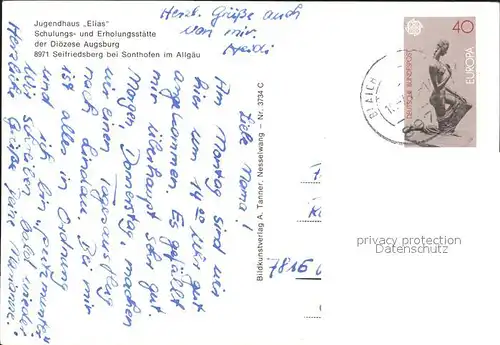 Jugendhaus „Elias"
Schulungs- und Erholungsstätte
der Diözese Augsburg
8971 Seifriedsberg bei Sonthofen im Allgäu
Herzl. Grüße auch
von mir.
Heidi
Liebe Mama!
Am Montag sind wir
hier um 14 20 Uhr gut
angekommen. Es gefällt
mir überhaupt sehr gut.
Morgen, Donnerstag, machen
wir einen Tagesausflug
nach Lindau. Bei mir
ist alles in Ordnung
und ich bin „putzmunter"
Wir schreiben bald wieder
Herzliche Grüße Marianne.
Bildkunstverlag A. Tanner, Nesselwang – Nr. 3734 C
7816
BLAICH
40
EUROPA
DEUTSCHE BUNDESPOST
CEPT
privacy protection
Datenschutz